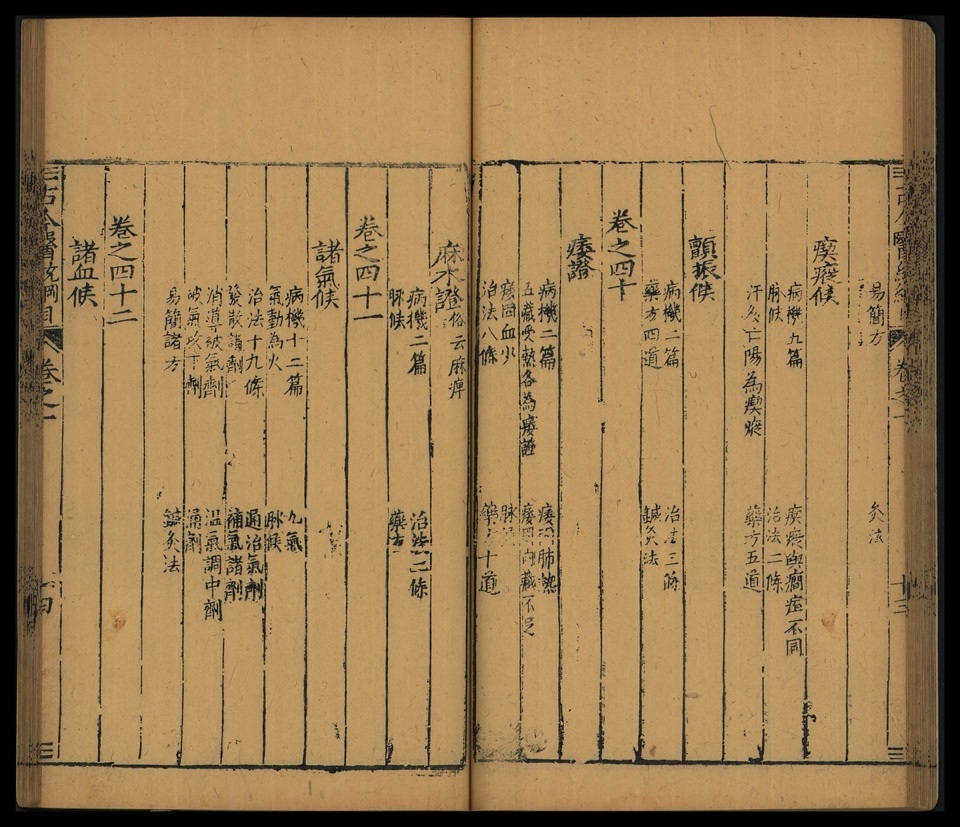 易簡方
灸法
瘈瘲候
病機九篇
瘈瘲與癎痙不同
脉候
治法二條
汗多亡陽為瘈瘲
藥方五道
顫振候
病機二篇
治法三條
藥方四道
鍼灸法
卷之四十
痿證
病機二篇
痿因肺熱
五藏受熱各為痿證
痿因內藏不足
痿因血少
脉候
治法八條
十道
麻木證俗云麻痺
病機二篇
治法二條
脉候
藥方
卷之四十一
諸氣候
病機十二篇
九氣
氣動為火
脉候
治法十九條
通治氣劑
發散諸劑
補氣諸劑
消導破氣劑
溫氣調中劑
破氣攻下劑
涌劑
易簡諸方
鍼灸法
卷之四十二
諸血候
古今醫統綱目
卷之一
十四
卷之一
十三